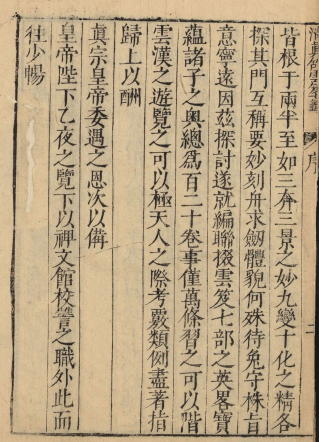 皆根于兩半至如三奔三景之妙九變十化之精各
探其門互稱要妙刻舟求劔體貌何殊待兎守株旨
意寧遠因茲探討遂就編聯掇雲笈七部之英畧寶
蘊諸子之奥總爲百二十卷事僅萬條習之可以階
雲漢之遊覽之可以極天人之際考覈類例盡著指
歸上以酬
眞宗皇帝委遇之恩次以僃
皇帝陛下乙夜之覽下以裨文館校讐之職外此而
往少暢
序
二